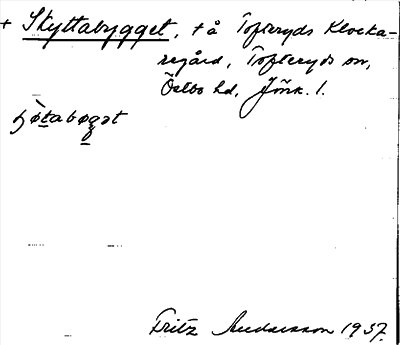 + Skyttabygget, t å Tofteryds Klocka-
regård, Tofteryds sn,
Östbo hd, Jönk. l.
Fritz Andersson 1937.